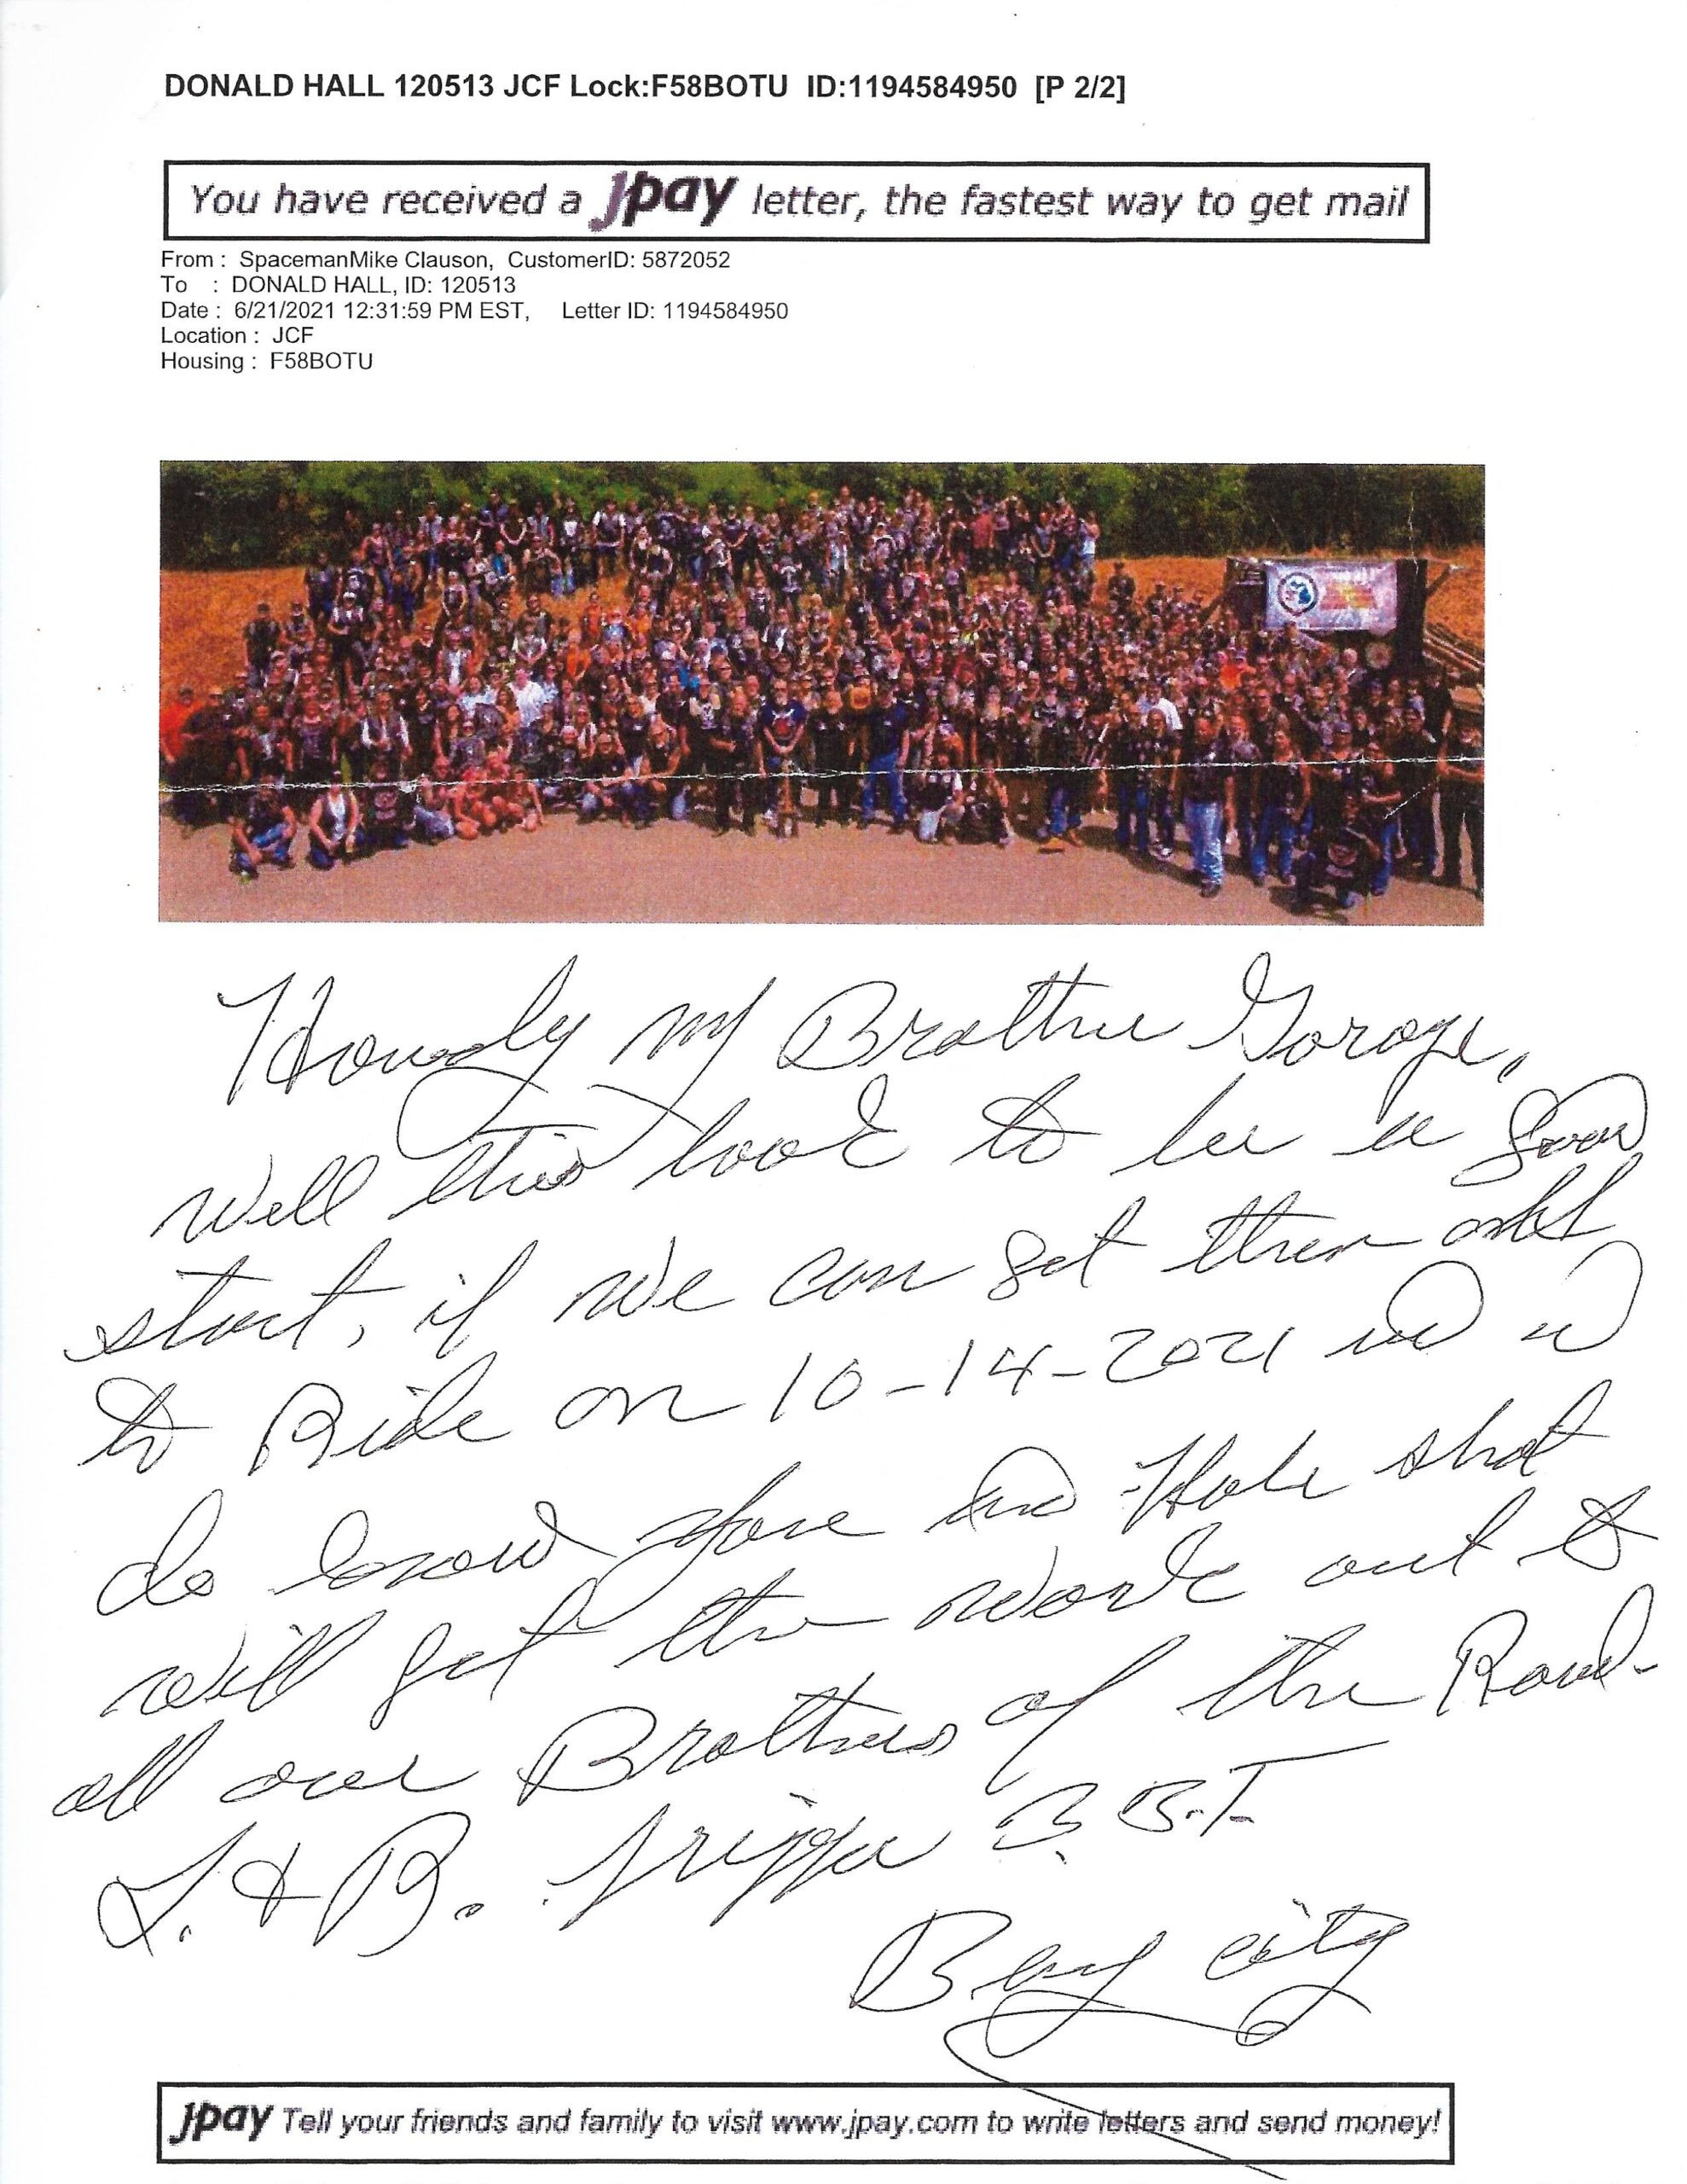 DONALD HALL 120513 JCF Lock:F58BOTU ID:1194584950 [P 2/2]
You have received a Jpay letter, the fastest way to get mail
From : SpacemanMike Clauson, CustomerID: 5872052
To : DONALD HALL, ID: 120513
Date : 6/21/2021 12:31:59 PM EST, Letter ID: 1194584950
Location : JCF
Housing : F58BOTU
Howdy my Brother Garage,
well this look to be a good
start, if we can get them all
to Ride on 10-14-2021 and
do know you and Hole shot
will get the work out to
all our Brothers of the Road-
L. & R. Trigger B.B.T.
Bay city
Jpay Tell your friends and family to visit www.jpay.com to write letters and send money!